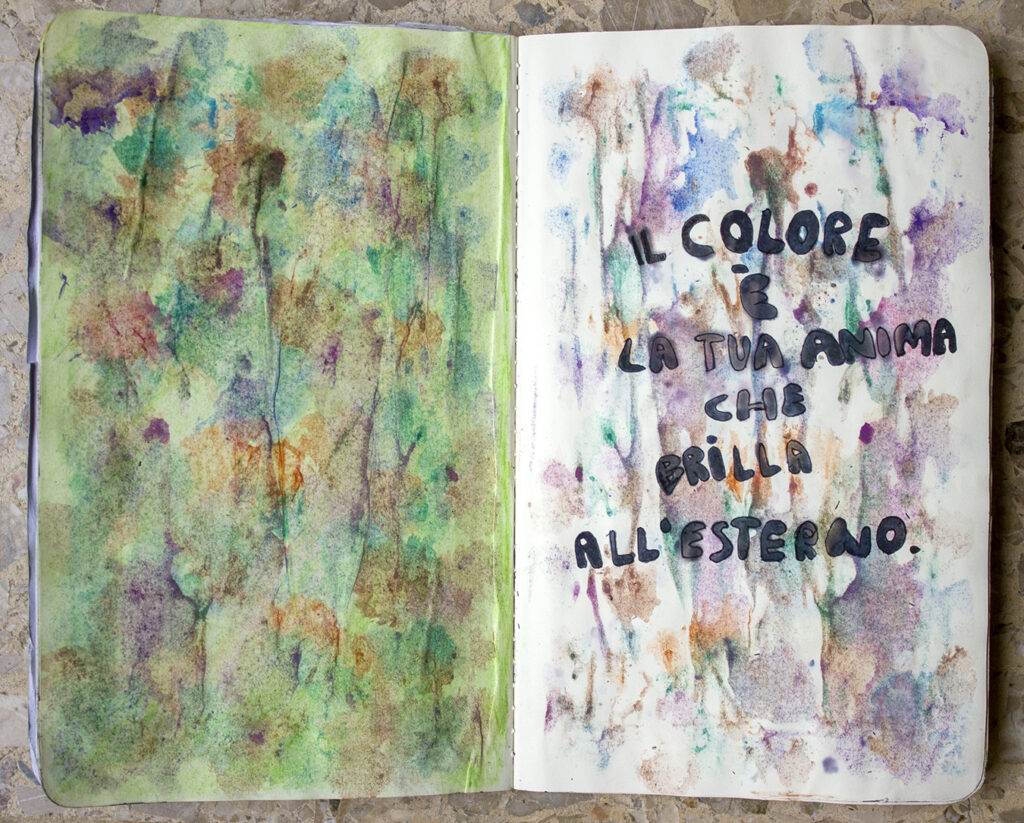 IL COLORE
È
LA TUA ANIMA
CHE
BRILLA
ALL'ESTERNO.